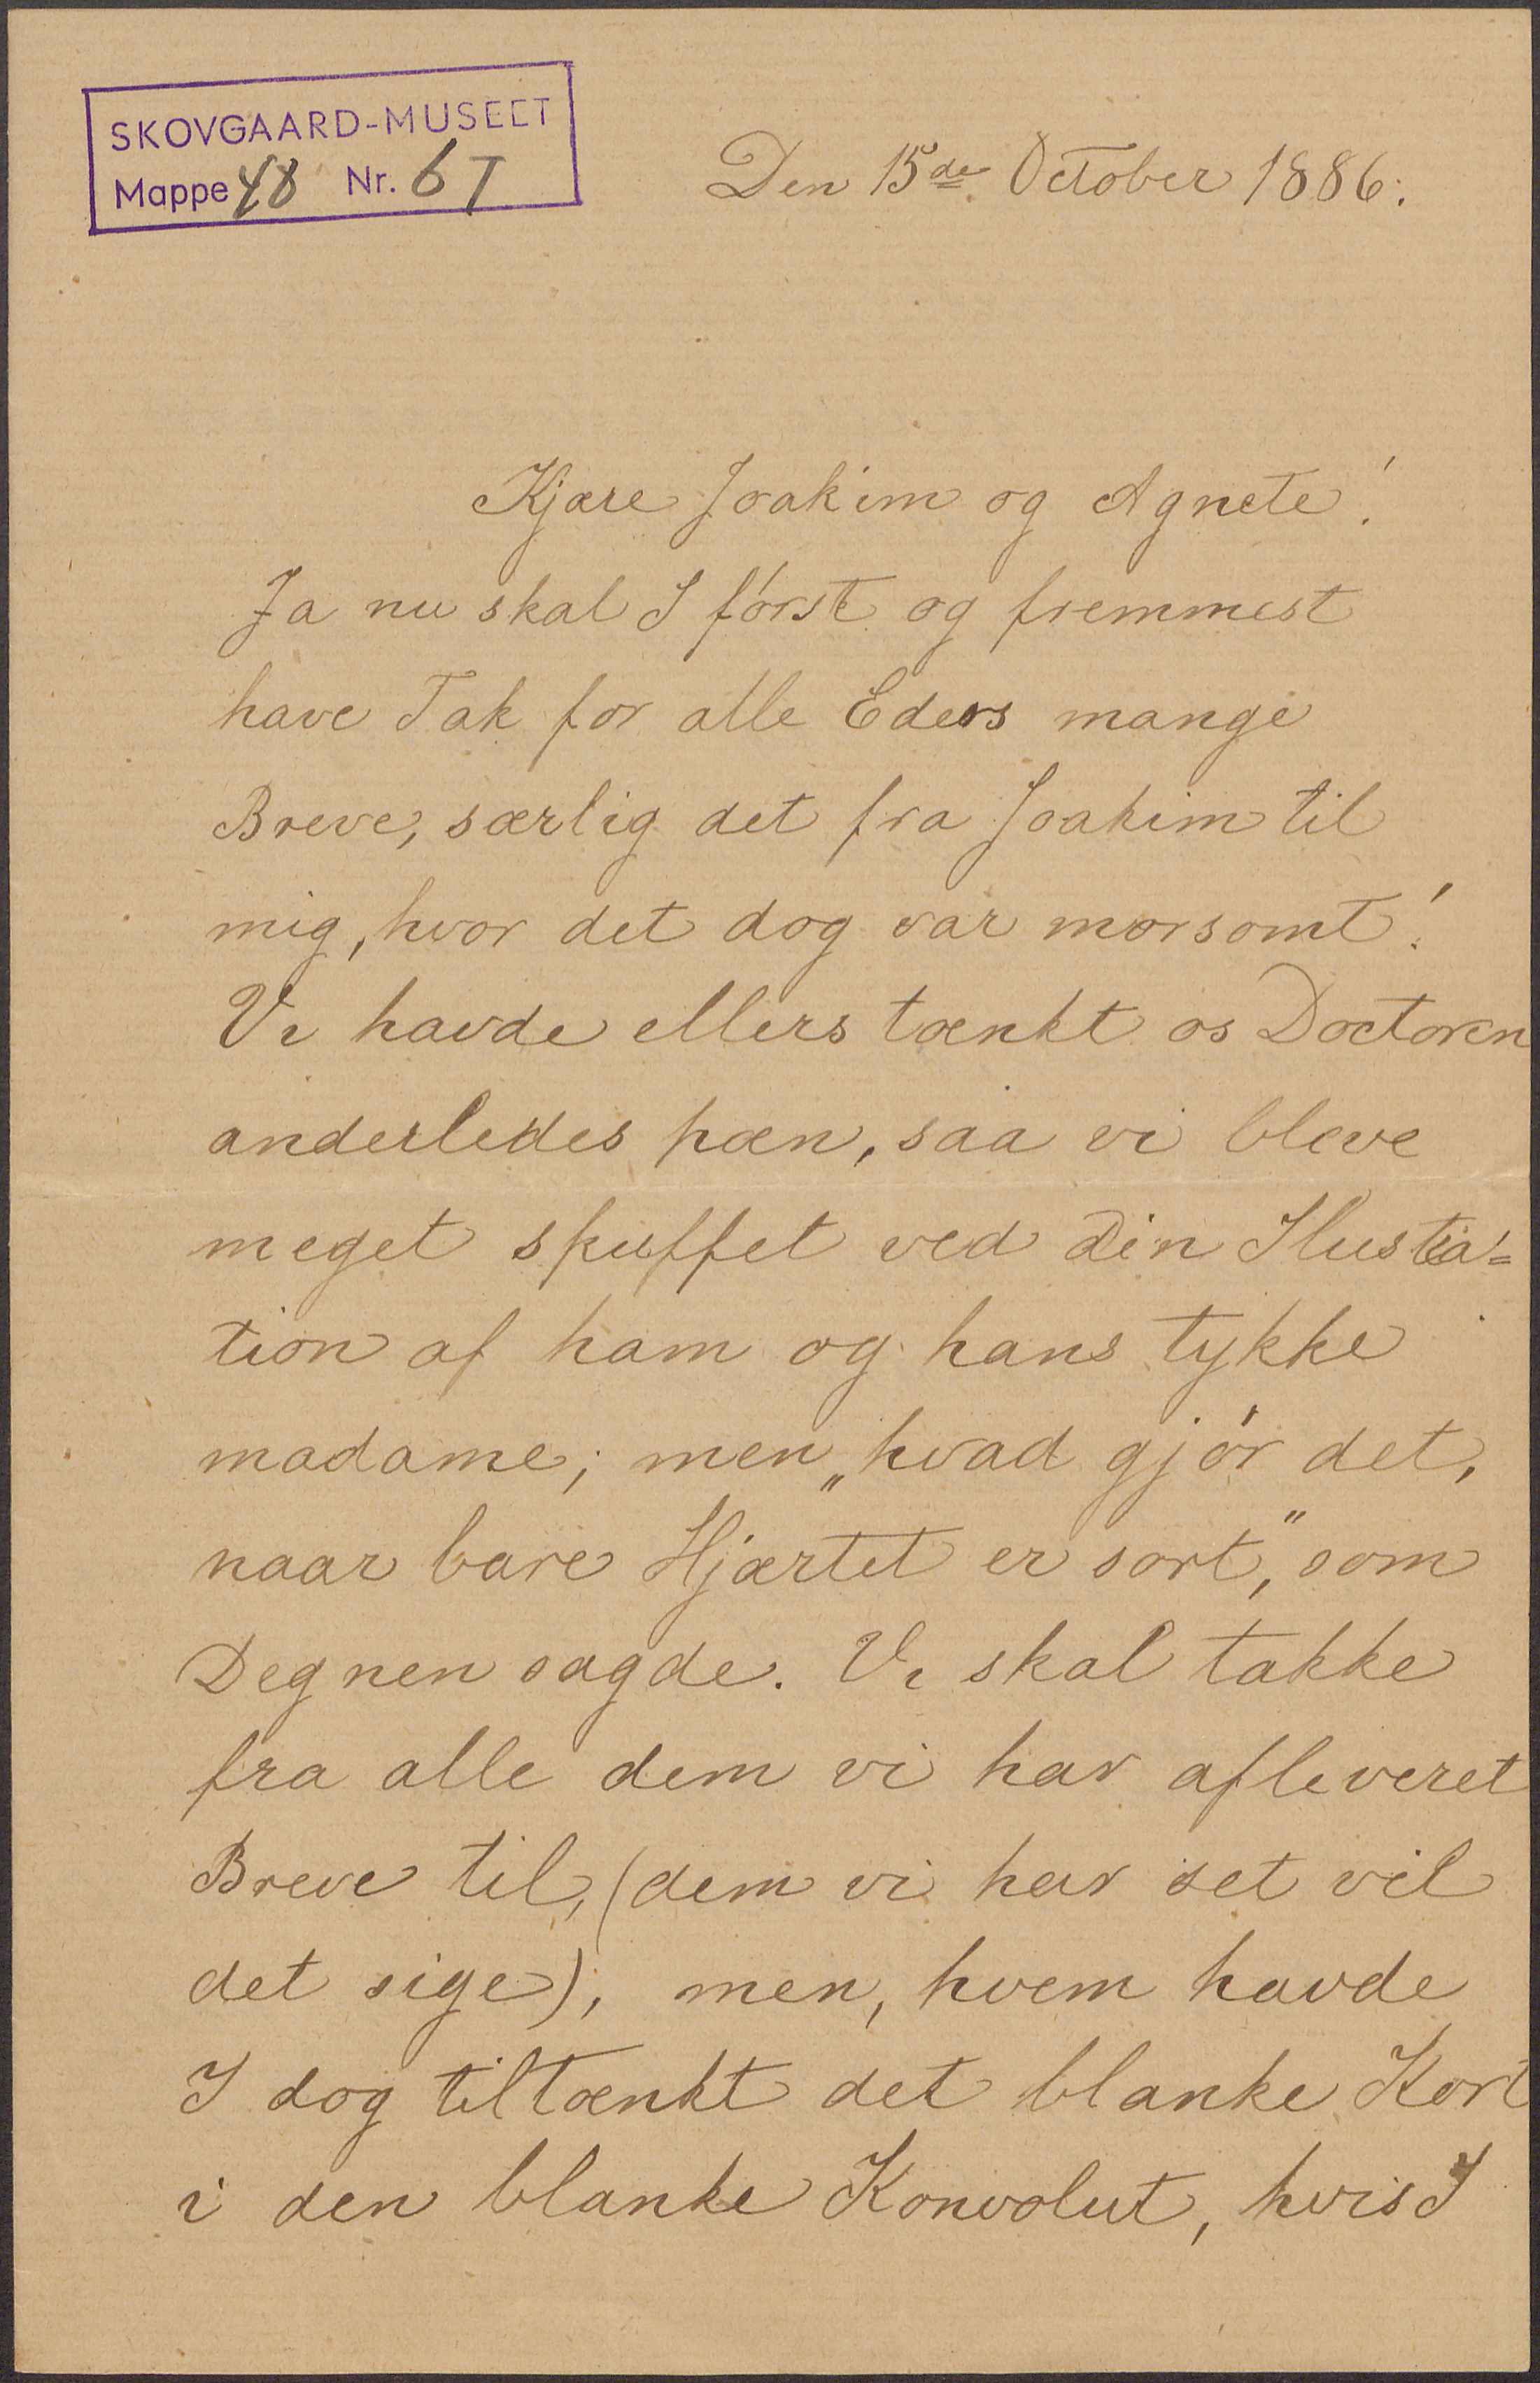 SKOVGAARD-MUSEET
Mappe 48 Nr. 67
Den 15de October 1886.
Kjære Joakim og Agnete!
Ja nu skal I först og fremmest
have Tak for alle Eders mange
Breve, særlig det fra Joakim til
mig, hvor det dog var morsomt!
Vi havde ellers tænkt os Doctoren
anderledes pæn, saa vi bleve
meget skuffet ved din Ilustra=
tion af ham og hans tykke
madame; men „hvad gjör det,
naar bare Hjærtet er sort", som
Degnen sagde. Vi skal takke
fra alle dem vi har afleveret
Breve til, (dem vi har set vil
det sige), men, hvem havde
I dog tiltænkt det blanke Kort
i den blanke Konvolut, hvis I